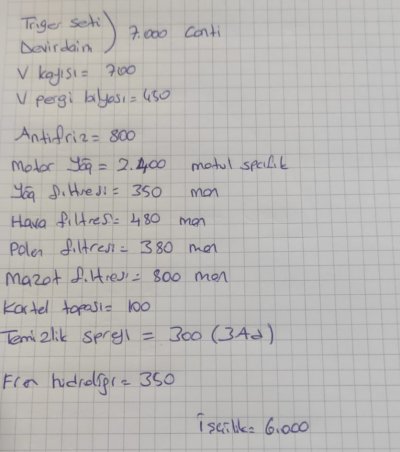 Triger seti ) 7.000 Conti
Devirdaim
V kayısı = 700
V pergi bilyası = 450
Antifriz = 800
Motor Yağ = 2.400 motul spesifik
Yağ filtresi = 350 man
Hava filtresi = 480 man
Polen filtresi = 380 man
Mazot filtresi = 800 man
Kartel tapası = 100
Temizlik spreyi = 300 (3Ad)
Fren hidroliği = 350
İşçilik = 6.000